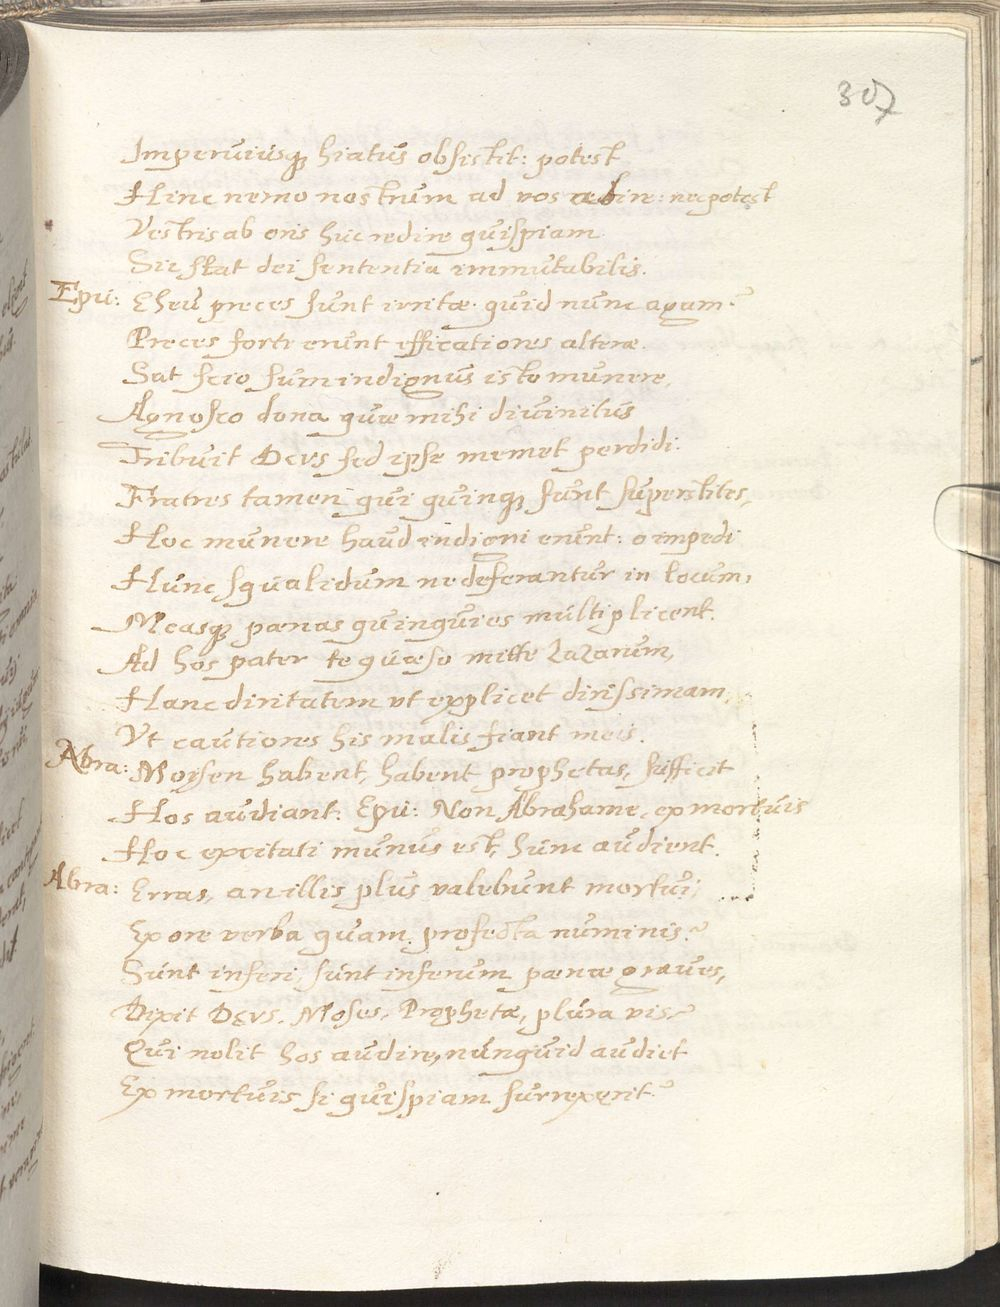 307
Imperuiusq; hiatus obsistit: potest
Hinc nemo nostrum ad vos abire: ne potest
Vestris ab oris huc redire quispiam
Sic stat dei sententia immutabilis.
Epu: Eheu preces sunt irritæ. quid nunc agam?
Preces forte erunt efficatiores alteræ.
Sat scio sum indignus isto munere,
Agnosco dona quæ mihi diuinitus
Tribuit Deus sed ipse memet perdidi.
Fratres tamen qui quinq; sunt superstites,
Hoc munere haud indigni erunt: o impedi
Hunc squalidum ne deferantur in locum,
Measq; pœnas quinquies multiplicent.
Ad hos pater te quæso mitte Lazarum,
Hanc diritatem vt explicet dirissimam,
Vt cautiores his malis fiant meis.
Abra: Moysen habent, habent prophetas, sufficit
Hos audiant. Epu: Non Abrahame, ex mortuis
Hoc excitati munus est, hunc audient.
Abra: Erras, an illis plus valebunt mortui;
Ex ore verba quam profecta numinis?
Sunt inferi, sunt inferum pœnæ graues,
Dixit Deus, Moses, Prophetæ, plura vis?
Qui nolit hos audire, nunquid audiet
Ex mortuis si quispiam surrexerit?